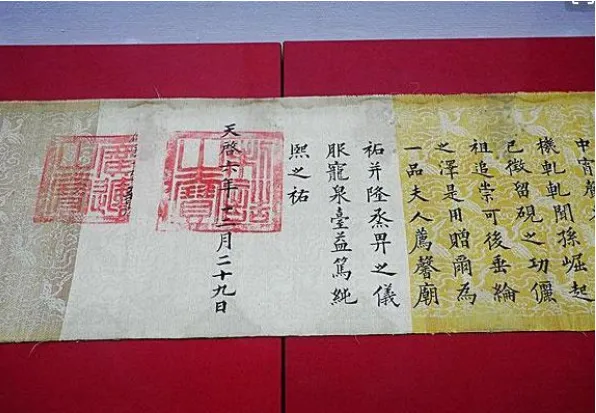 中宵
機軋軋聞孫崛起
已徵留硯之功儷
祖追崇可後垂綸
之澤是用贈爾為
一品夫人薦馨廟
祐并隆烝畀之儀
服寵泉臺益篤純
熙之祐
天啓六年十二月二十九日
制誥之寶
廣運之寶